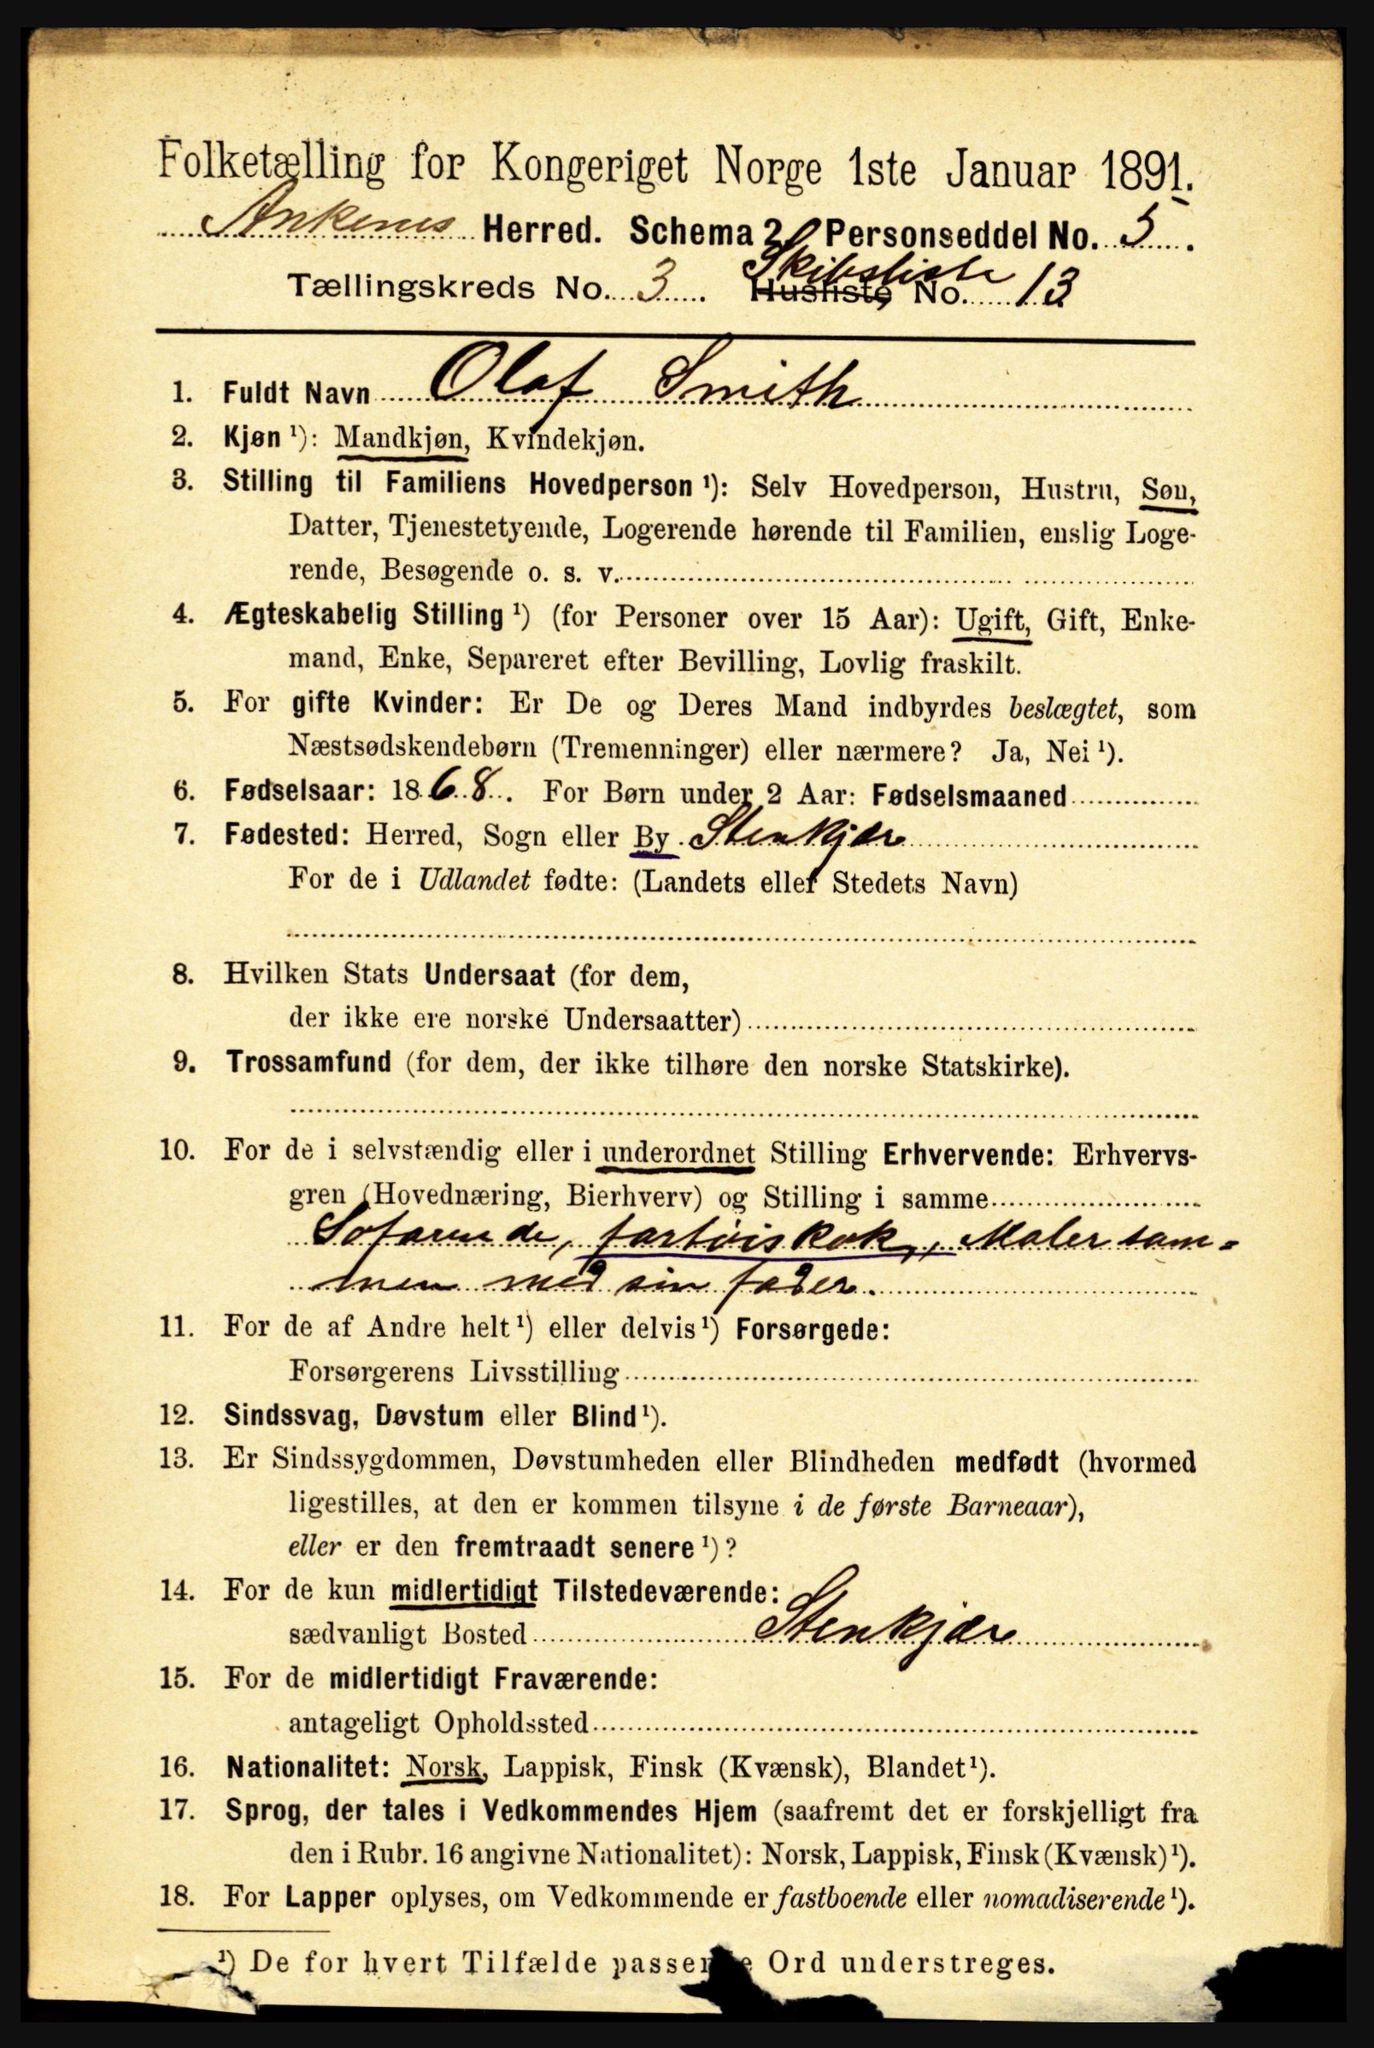 Folketælling for Kongeriget Norge 1ste Januar 1891.
Ankenes Herred. Schema 2 Personseddel No. 5.
Tællingskreds No. 3. Husliste Skibsliste No. 13
1. Fuldt Navn Olaf Smith
2. Kjøn ¹): Mandkjøn, Kvindekjøn.
3. Stilling til Familiens Hovedperson ¹): Selv Hovedperson, Hustru, Søn,
Datter, Tjenestetyende, Logerende hørende til Familien, enslig Loge-
rende, Besøgende o. s. v.
4. Ægteskabelig Stilling ¹) (for Personer over 15 Aar): Ugift, Gift, Enke-
mand, Enke, Separeret efter Bevilling, Lovlig fraskilt.
5. For gifte Kvinder: Er De og Deres Mand indbyrdes beslægtet, som
Næstsødskendebørn (Tremenninger) eller nærmere? Ja, Nei ¹).
6. Fødselsaar: 1868. For Børn under 2 Aar: Fødselsmaaned
7. Fødested: Herred, Sogn eller By. Stenkjær
For de i Udlandet fødte: (Landets eller Stedets Navn)
8. Hvilken Stats Undersaat (for dem,
der ikke ere norske Undersaatter)
9. Trossamfund (for dem, der ikke tilhøre den norske Statskirke).
10. For de i selvstændig eller i underordnet Stilling Erhvervende: Erhvervs-
gren (Hovednæring, Bierhverv) og Stilling i samme
Søfarende, fartøiskok, Maler sam-
men med sin fader.
11. For de af Andre helt ¹) eller delvis ¹) Forsørgede:
Forsørgerens Livsstilling
12. Sindssvag, Døvstum eller Blind ¹).
13. Er Sindssygdommen, Døvstumheden eller Blindheden medfødt (hvormed
ligestilles, at den er kommen tilsyne i de første Barneaar),
eller er den fremtraadt senere ¹)?
14. For de kun midlertidigt Tilstedeværende:
sædvanligt Bosted Stenkjær
15. For de midlertidigt Fraværende:
antageligt Opholdssted
16. Nationalitet: Norsk, Lappisk, Finsk (Kvænsk), Blandet ¹).
17. Sprog, der tales i Vedkommendes Hjem (saafremt det er forskjelligt fra
den i Rubr. 16 angivne Nationalitet): Norsk, Lappisk, Finsk (Kvænsk) ¹).
18. For Lapper oplyses, om Vedkommende er fastboende eller nomadiserende ¹).
¹) De for hvert Tilfælde passende Ord understreges.